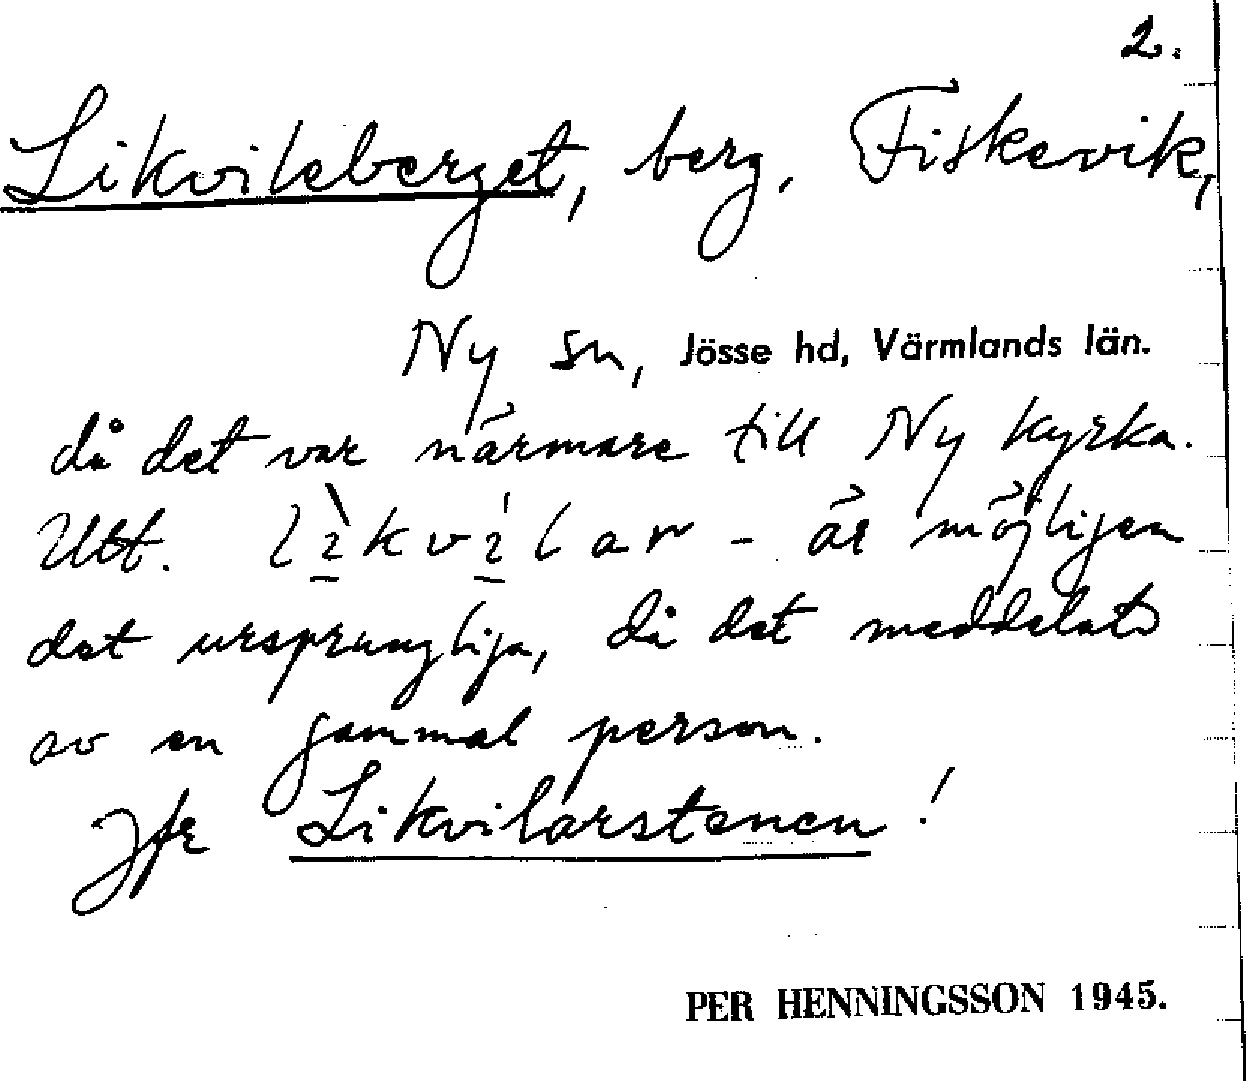 2.
Likvileberget, berg, Fiskevik,
Ny sn, Jösse hd, Värmlands län.
då det var närmare till Ny kyrka.
Utt. lìkvílar - är möjligen
det ursprungliga, då det meddelats
av en gammal person.
Jfr Likvilarstenen!
PER HENNINGSSON 1945.